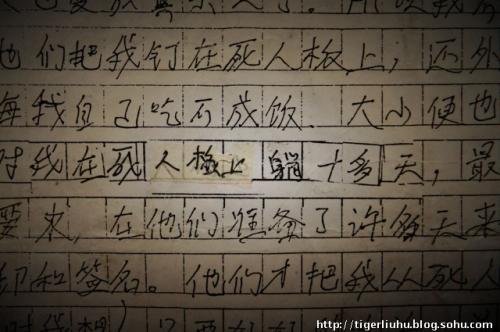 也们把我钉在死人板上，还外
每我自己吃不成饭．大小便也
对我在死人板上躺十多天，最
要求，在他们准备了许多天来
印和签名。他们才把我从死人
http://tigerliuhu.blog.sohu.com